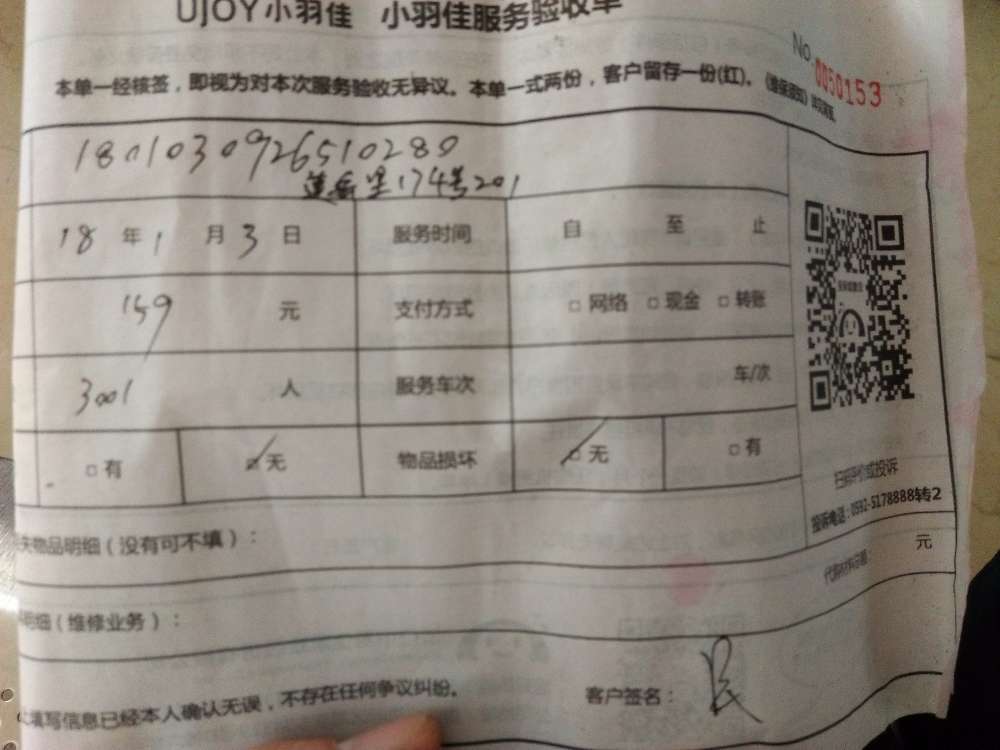 UJOY小羽佳 小羽佳服务验收单
No. 0050153
本单一经核签，即视为对本次服务验收无异议。本单一式两份，客户留存一份(红)。《维保须知》
1801030926510280
莲岳里174号201
18 年 1 月 3 日 服务时间 自 至 止
159 元 支付方式 □ 网络 □ 现金 □ 转账
3001 人 服务车次 车/次
□ 有 ☑ 无 物品损坏 ☑ 无 □ 有
扫码评价或投诉
投诉电话：0592-5178888转2
物品明细（没有可不填）：
元
明细（维修业务）：
填写信息已经本人确认无误，不存在任何争议纠纷。 客户签名：